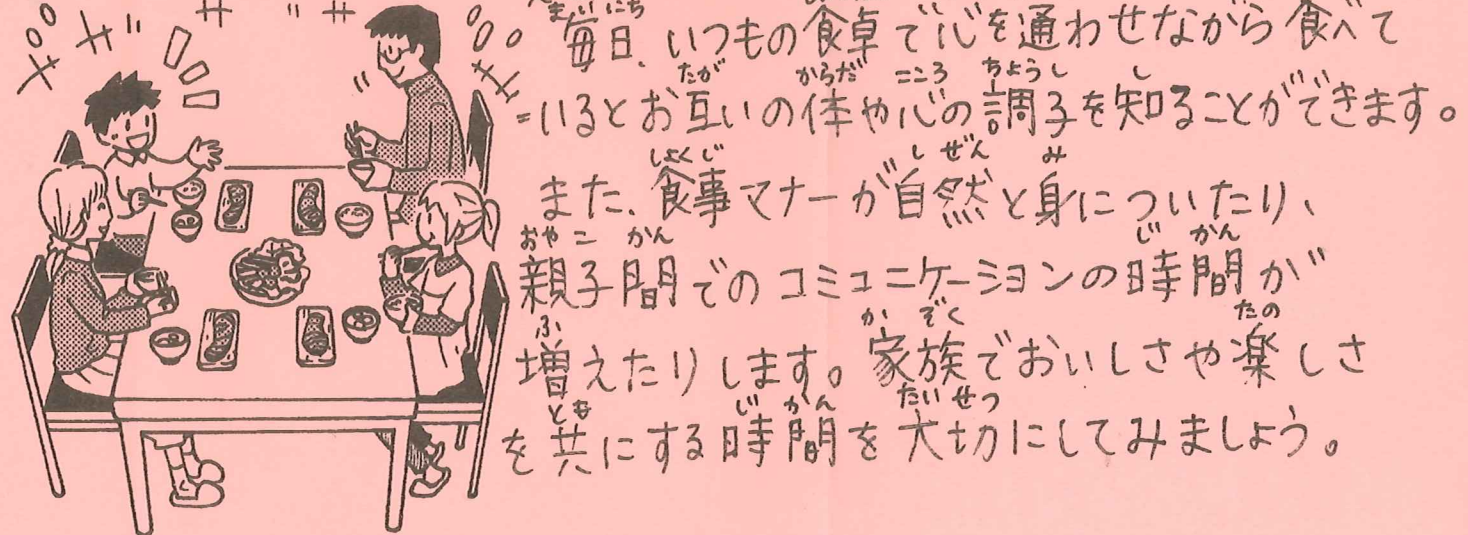 毎日、いつもの食卓で心を通わせながら食べて
いるとお互いの体や心の調子を知ることができます。
また、食事マナーが自然と身についたり、
親子間でのコミュニケーションの時間が
増えたりします。家族でおいしさや楽しさ
を共にする時間を大切にしてみましょう。